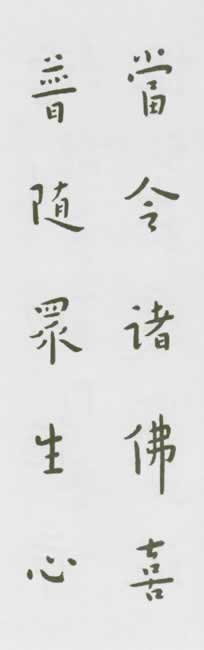 當令諸佛喜
普随眾生心